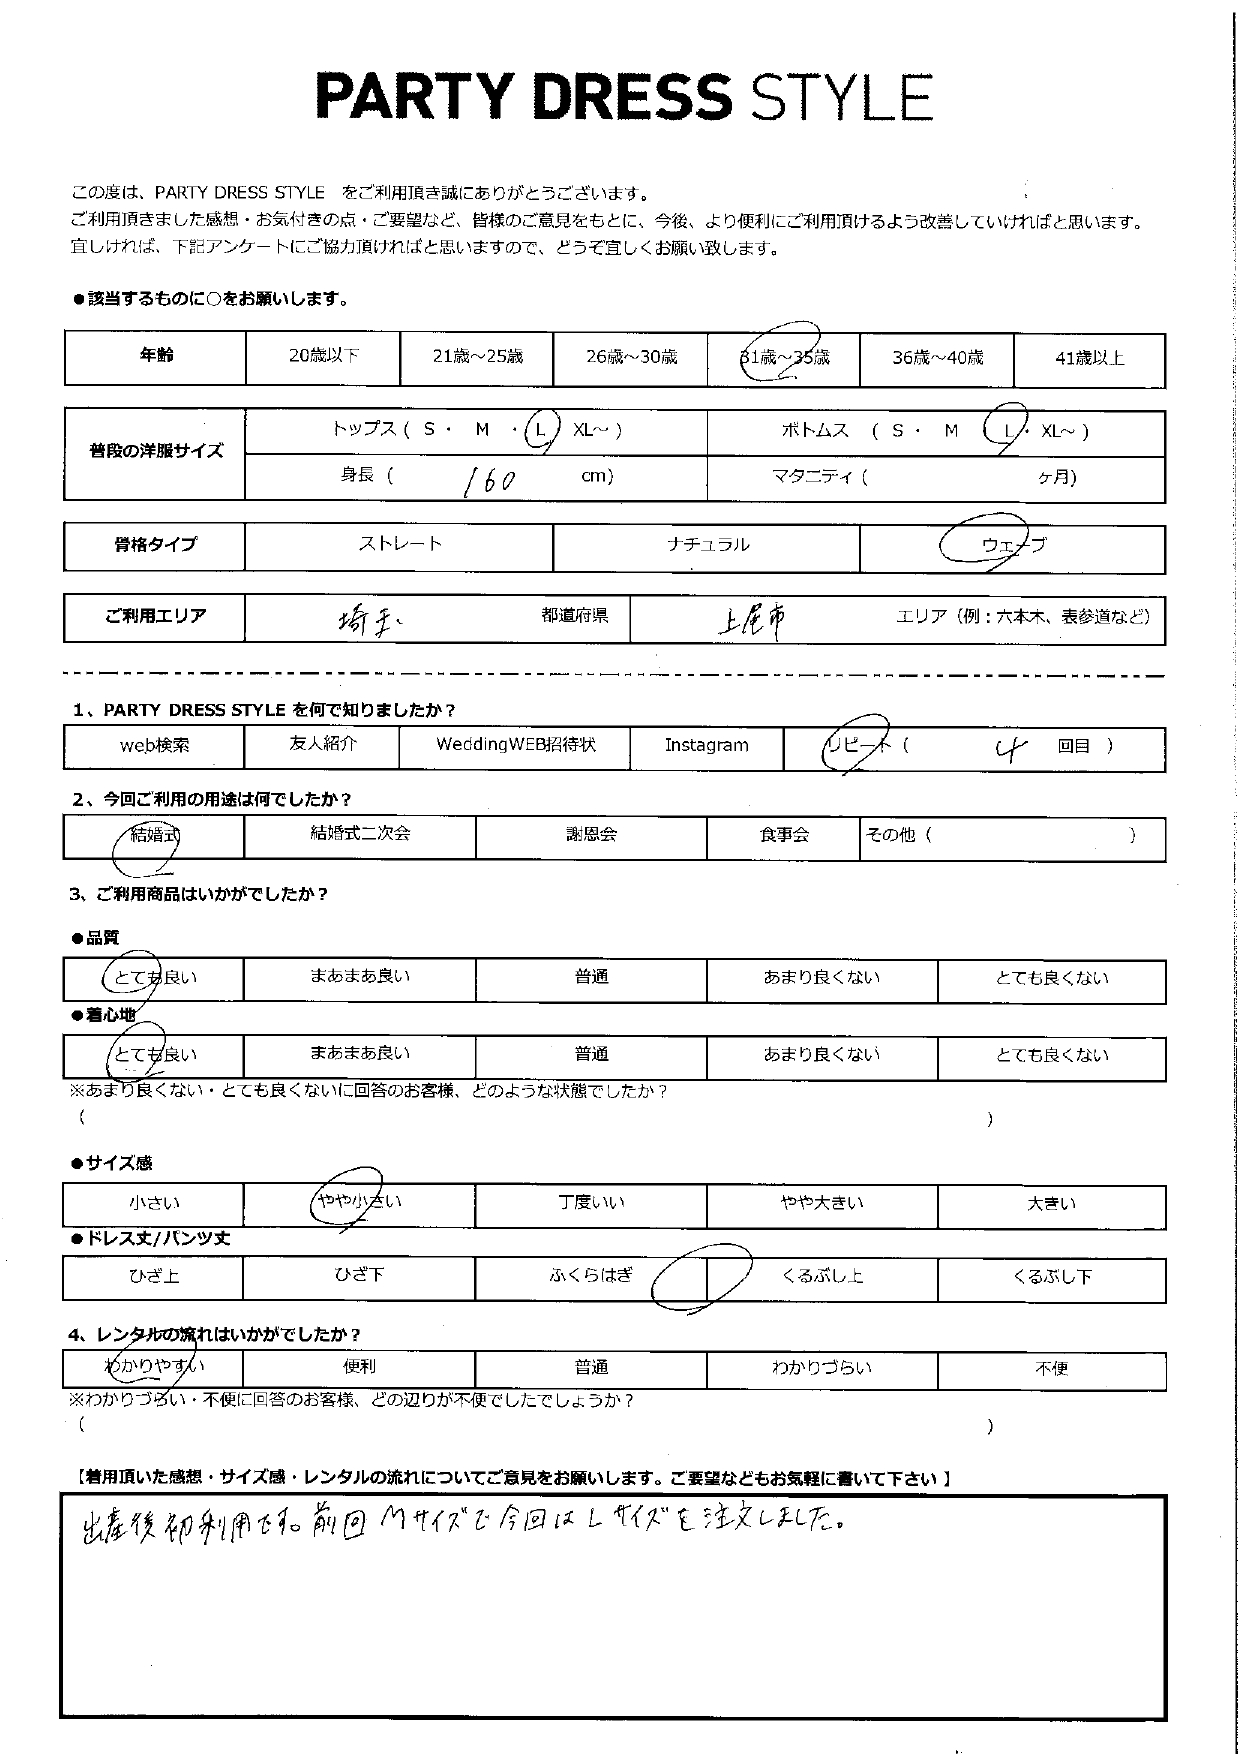 PARTY DRESS STYLE
この度は、PARTY DRESS STYLE をご利用頂き誠にありがとうございます。
ご利用頂きました感想・お気付きの点・ご要望など、皆様のご意見をもとに、今後、より便利にご利用頂けるよう改善していければと思います。
宜しければ、下記アンケートにご協力頂ければと思いますので、どうぞ宜しくお願い致します。
●該当するものに○をお願いします。
年齢 20歳以下 21歳～25歳 26歳～30歳 31歳～35歳 36歳～40歳 41歳以上
普段の洋服サイズ トップス ( S ・ M ・ L XL～ ) ボトムス ( S ・ M L ・ XL～ )
身長 ( 160 cm) マタニティ ( ヶ月)
骨格タイプ ストレート ナチュラル ウェーブ
ご利用エリア 埼玉 都道府県 上尾市 エリア（例：六本木、表参道など）
1、PARTY DRESS STYLE を何で知りましたか？
web検索 友人紹介 WeddingWEB招待状 Instagram リピート ( 4 回目 )
2、今回ご利用の用途は何でしたか？
結婚式 結婚式二次会 謝恩会 食事会 その他 ( )
3、ご利用商品はいかがでしたか？
●品質
とても良い まあまあ良い 普通 あまり良くない とても良くない
●着心地
とても良い まあまあ良い 普通 あまり良くない とても良くない
※あまり良くない・とても良くないに回答のお客様、どのような状態でしたか？
( )
●サイズ感
小さい やや小さい 丁度いい やや大きい 大きい
●ドレス丈/パンツ丈
ひざ上 ひざ下 ふくらはぎ くるぶし上 くるぶし下
4、レンタルの流れはいかがでしたか？
わかりやすい 便利 普通 わかりづらい 不便
※わかりづらい・不便に回答のお客様、どの辺りが不便でしたでしょうか？
( )
【着用頂いた感想・サイズ感・レンタルの流れについてご意見をお願いします。ご要望などもお気軽に書いて下さい 】
出産後初利用です。前回Mサイズで今回はLサイズを注文しました。